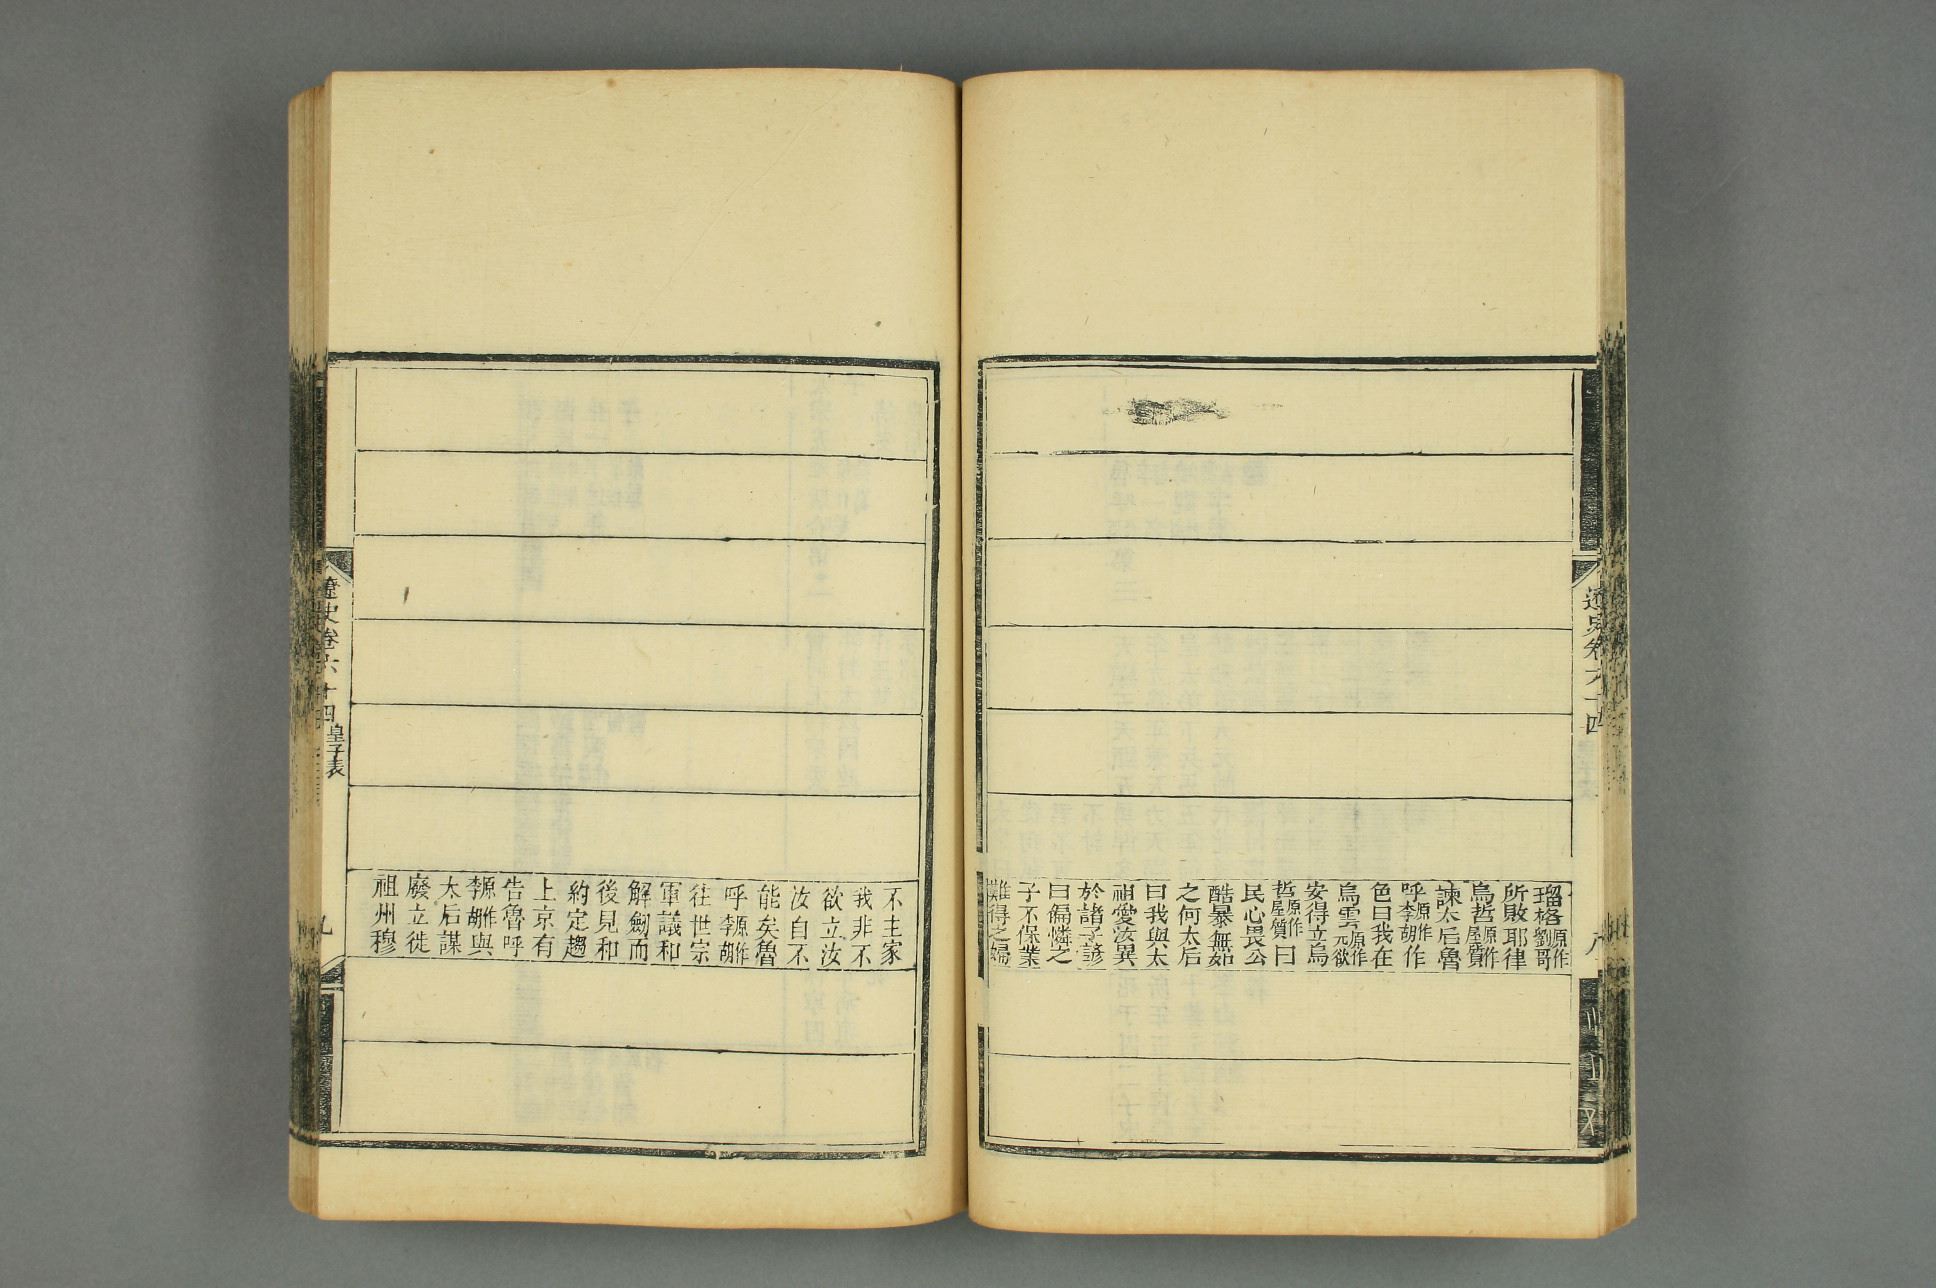 遼史卷六十四
瑠格原作劉哥
所敗耶律
烏哲原作屋質
諫太后魯
呼原作李胡作
色曰我在
烏雲原作元欲
安得立烏
哲原作屋質曰
民心畏公
酷暴無如
之何太后
曰我與太
祖愛汝異
於諸子諺
曰偏憐之
子不保業
難得之婦
不主家
我非不
欲立汝
汝自不
能矣魯
呼原作李胡
往世宗
軍議和
解劍而
後見和
約定趨
上京有
告魯呼
原作李胡與
太后謀
廢立徙
祖州穆
遼史卷六十四
皇子表
九